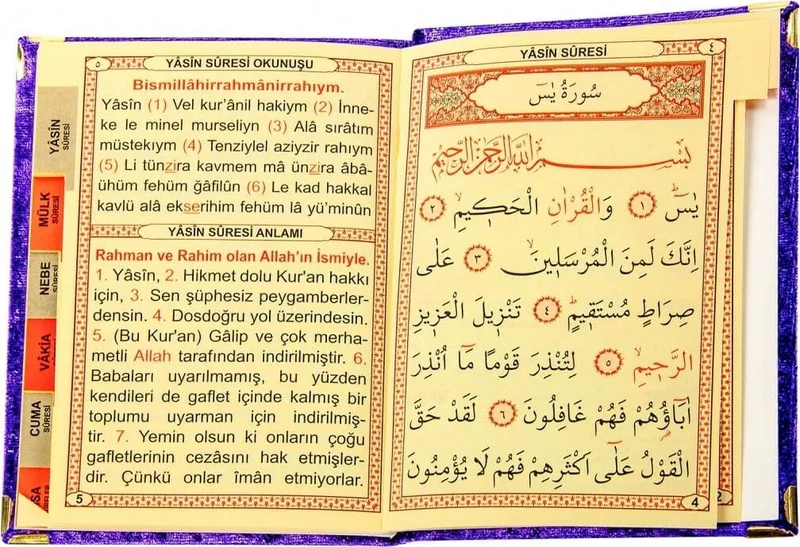 ٥
YÂSİN SÛRESİ OKUNUŞU
Bismillâhirrahmânirrahıym.
Yâsîn (1) Vel kur’ânil hakiym (2) İnne-
ke le minel murseliyn (3) Alâ sırâtım
müstekıym (4) Tenziylel aziyzir rahıym
(5) Li tünzira kavmem mâ ünzira âbâ-
ühüm fehüm ğâfilûn (6) Le kad hakkal
kavlü alâ ekserihim fehüm lâ yü’minûn
YÂSÎN SÛRESİ ANLAMI
Rahman ve Rahim olan Allah’ın İsmiyle.
1. Yâsîn, 2. Hikmet dolu Kur'an hakkı
için, 3. Sen şüphesiz peygamberler-
densin. 4. Dosdoğru yol üzerindesin.
5. (Bu Kur'an) Gâlip ve çok merha-
metli Allah tarafından indirilmiştir. 6.
Babaları uyarılmamış, bu yüzden
kendileri de gaflet içinde kalmış bir
toplumu uyarman için indirilmiş-
tir. 7. Yemin olsun ki onların çoğu
gafletlerinin cezâsını hak etmişler-
dir. Çünkü onlar îmân etmiyorlar.
5
YÂSİN
SÛRESİ
MÜLK
SÛRESİ
NEBE
SÛRESİ
VÂKIA
CUMA
SÛRESİ
YÂSİN SÛRESİ
٤
سُورَةُ يٰسٓ
بِسْمِ اللّٰهِ الرَّحْمٰنِ الرَّحِيمِ
يٰسٓ ۚ ﴿١﴾ وَالْقُرْاٰنِ الْحَك۪يمِۙ ﴿٢﴾
اِنَّكَ لَمِنَ الْمُرْسَل۪ينَۙ ﴿٣﴾ عَلٰى
صِرَاطٍ مُسْتَق۪يمٍۜ ﴿٤﴾ تَنْز۪يلَ الْعَز۪يزِ
الرَّح۪يمِۙ ﴿٥﴾ لِتُنْذِرَ قَوْمًا مَٓا اُنْذِرَ
اٰبَٓاؤُ۬هُمْ فَهُمْ غَافِلُونَ ﴿٦﴾ لَقَدْ حَقَّ
الْقَوْلُ عَلٰٓى اَكْثَرِهِمْ فَهُمْ لَا يُؤْمِنُونَ
4
2